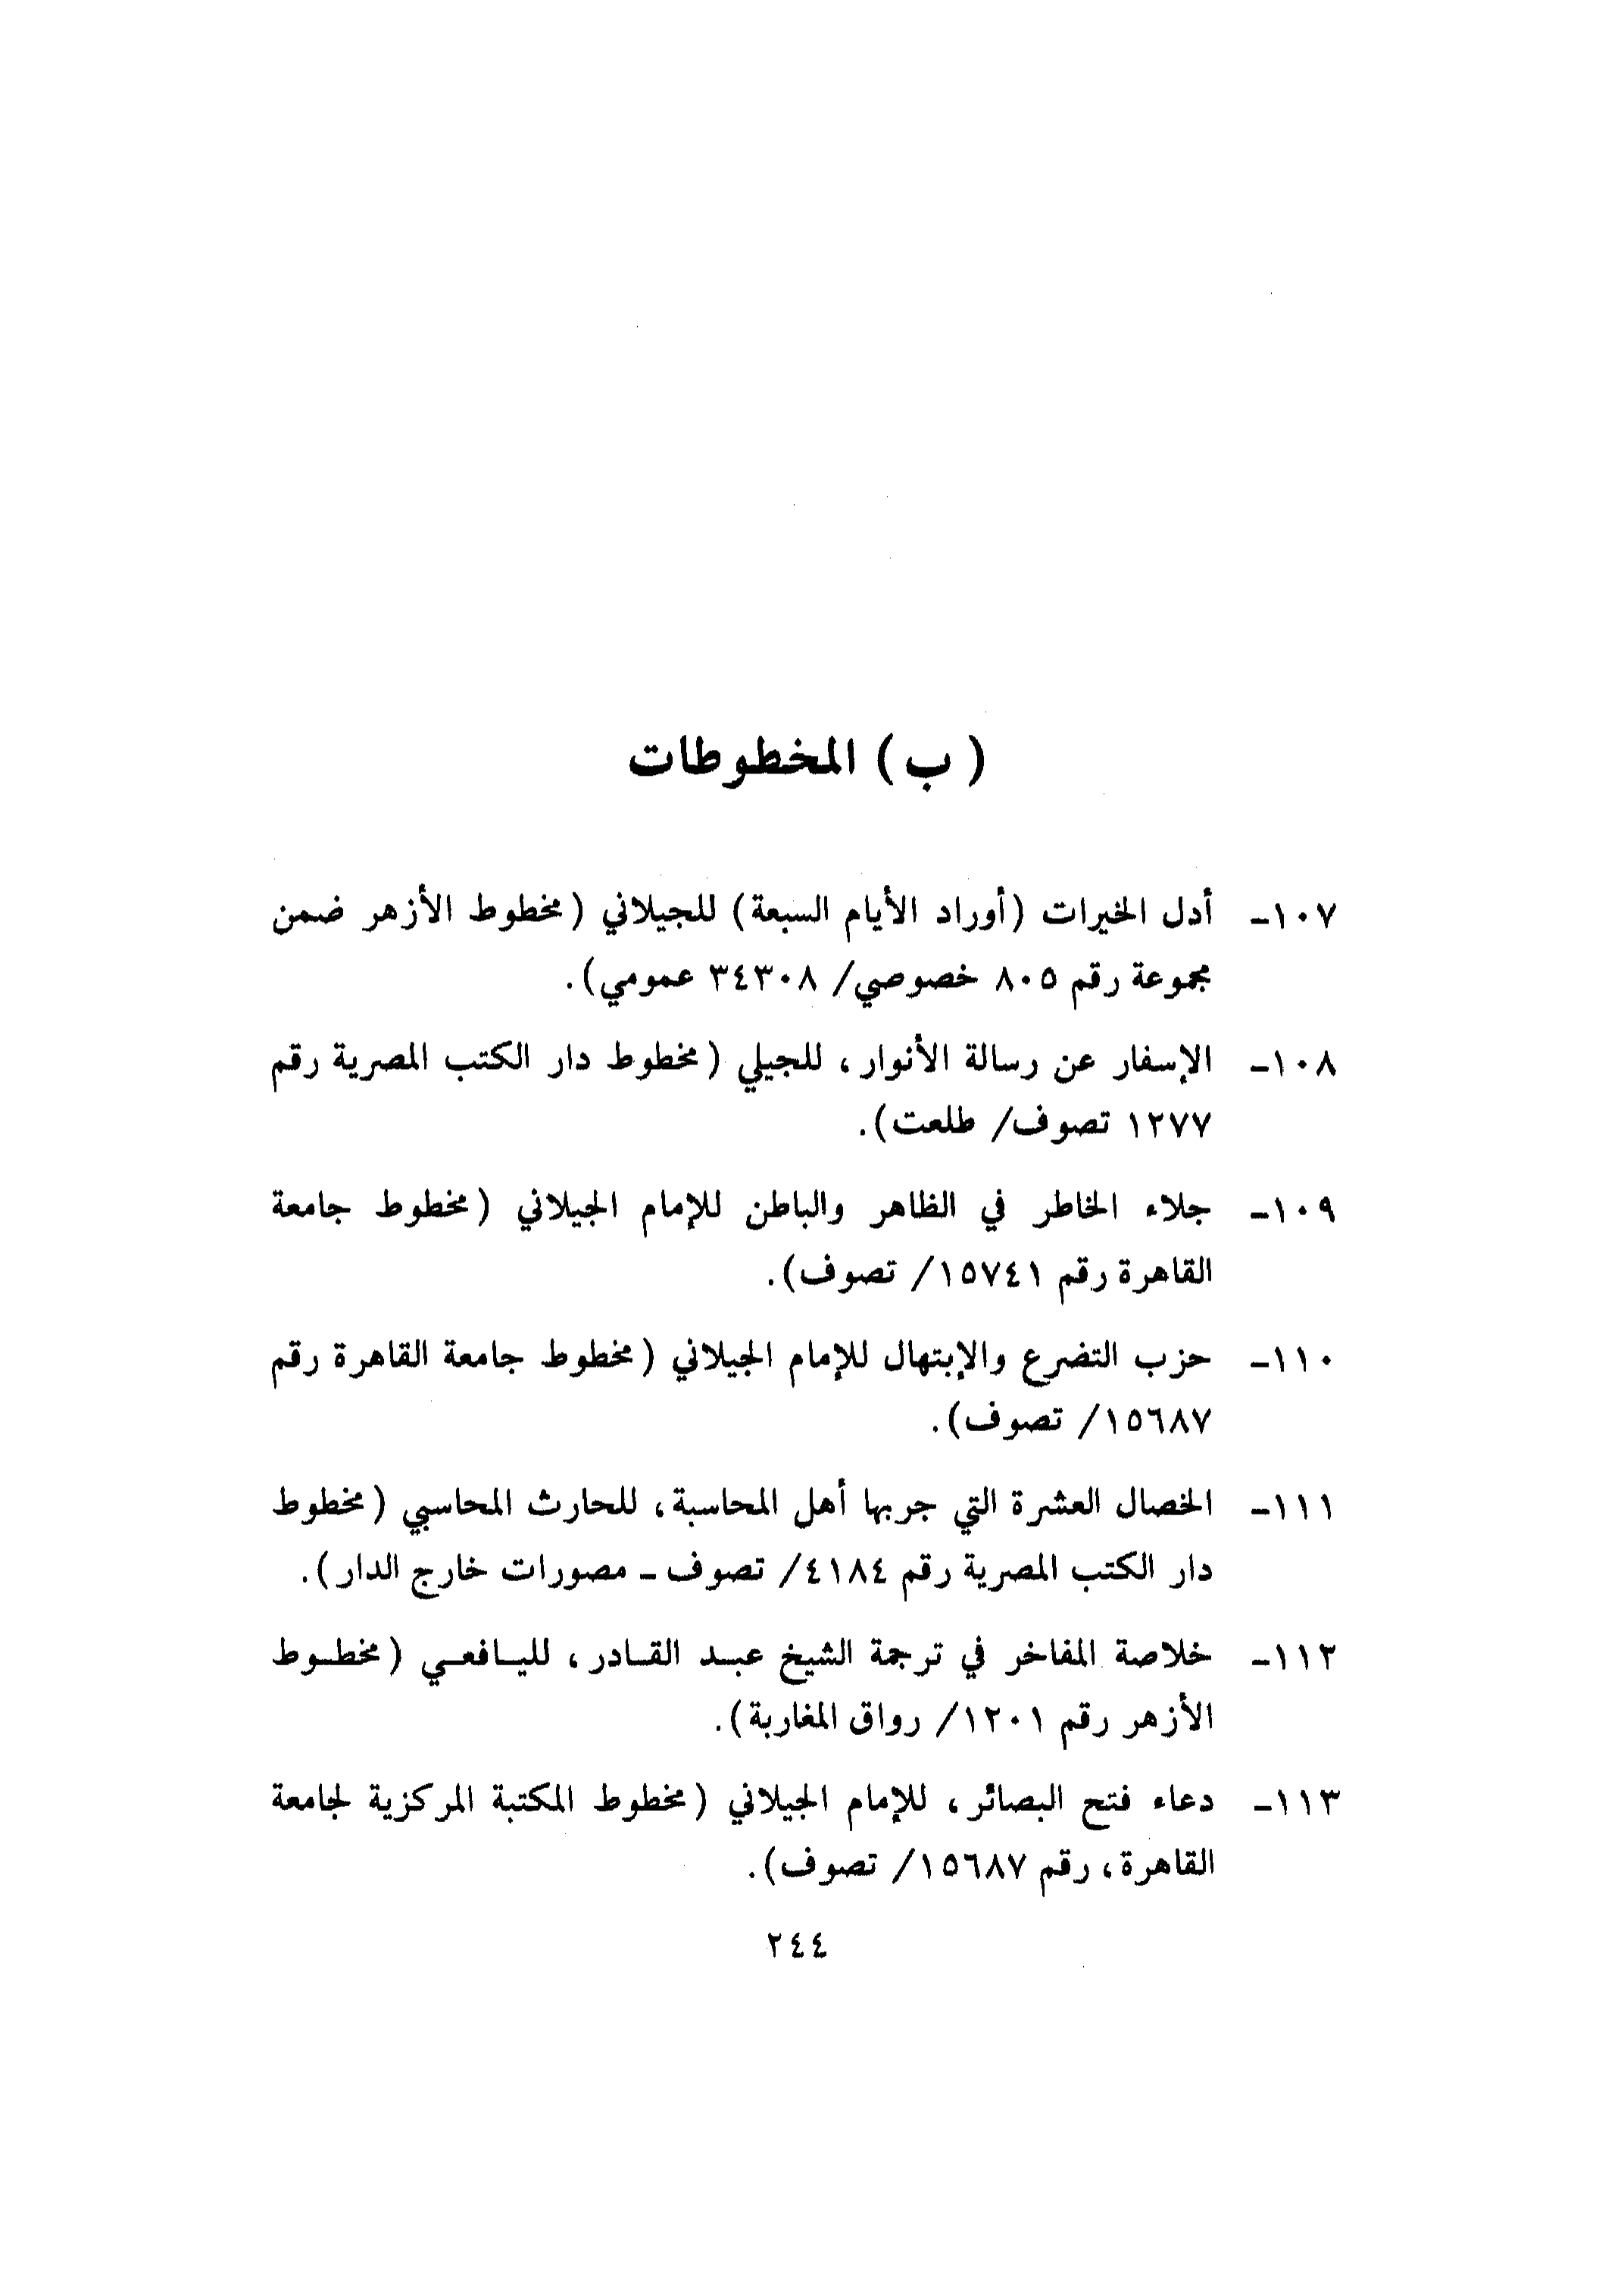 ( ب ) المخطوطات
١٠٧- أدل الخيرات (أوراد الأيام السبعة) للجيلاني (مخطوط الأزهر ضمن
مجموعة رقم ٨٠٥ خصوصي/ ٣٤٣٠٨ عمومي).
١٠٨- الإسفار عن رسالة الأنوار، للجيلي (مخطوط دار الكتب المصرية رقم
١٢٧٧ تصوف/ طلعت).
١٠٩- جلاء الخاطر في الظاهر والباطن للإمام الجيلاني (مخطوط جامعة
القاهرة رقم ١٥٧٤١/ تصوف).
١١٠- حزب التضرع والإبتهال للإمام الجيلاني (مخطوط جامعة القاهرة رقم
١٥٦٨٧/ تصوف).
١١١- الخصال العشرة التي جربها أهل المحاسبة، للحارث المحاسبي (مخطوط
دار الكتب المصرية رقم ٤١٨٤/ تصوف - مصورات خارج الدار).
١١٢- خلاصة المفاخر في ترجمة الشيخ عبـد القـادر، لليـافعـي (مخطـوط
الأزهر رقم ١٢٠١/ رواق المغاربة).
١١٣- دعاء فتح البصائر، للإمام الجيلاني (مخطوط المكتبة المركزية لجامعة
القاهرة، رقم ١٥٦٨٧/ تصوف).
٢٤٤